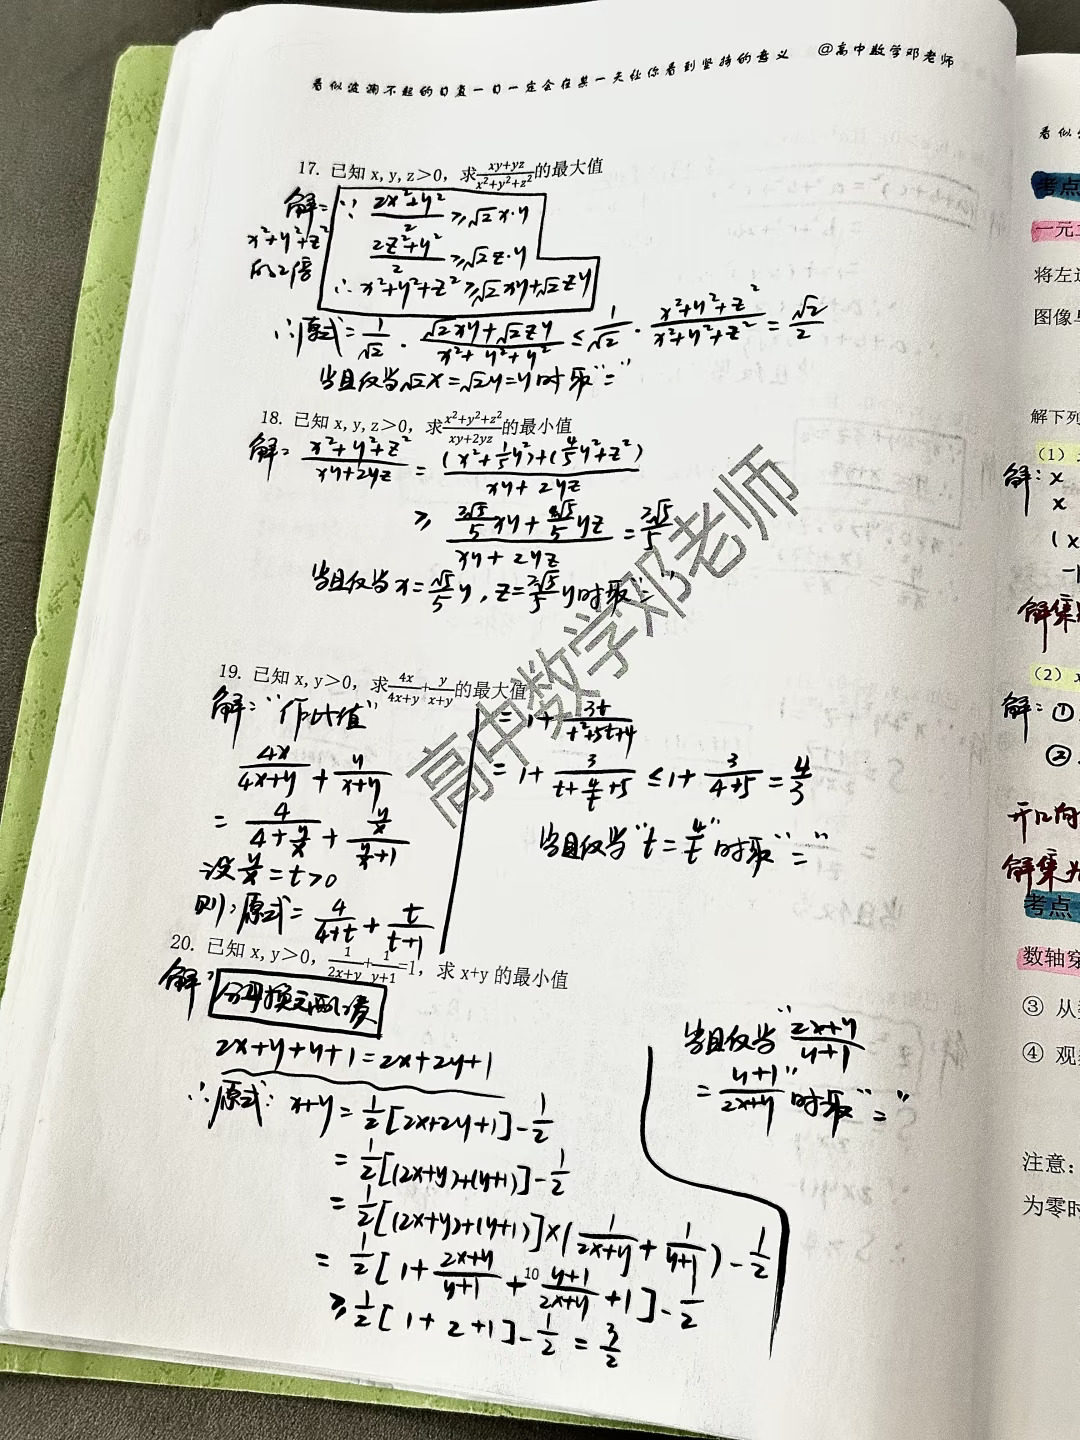 看似波澜不起的日复一日一定会在某一天让你看到坚持的意义 @高中数学邓老师
17. 已知 x, y, z>0，求(xy+yz)/(x²+y²+z²)的最大值
解: ∵ (2x²+y²)/2 ≥ √2x·y
x²+y²+z²
的2倍
(2z²+y²)/2 ≥ √2z·y
∴ x²+y²+z² ≥ √2xy+√2zy
∴原式 = 1/√2 · (√2xy+√2zy)/(x²+y²+y²) ≤ 1/√2 · (x²+y²+z²)/(x²+y²+z²) = √2/2
当且仅当√2x=√2y=y时取"="
18. 已知 x, y, z>0，求(x²+y²+z²)/(xy+2yz)的最小值
解: (x²+y²+z²)/(xy+2yz) = ((x²+1/5y²)+(4/5y²+z²))/(xy+2yz)
≥ (2√5/5xy+4√5/5yz)/(xy+2yz) = 2√5/5
当且仅当 x=√5/5y, z=2√5/5y时取"="
高中数学邓老师
19. 已知 x, y>0，求4x/(4x+y)+y/(x+y)的最大值
解: "作比值"
4x/(4x+y) + y/(x+y)
= 4/(4+y/x) + (y/x)/(y/x+1)
设y/x=t>0
则: 原式= 4/(4+t) + t/(t+1)
= 1+ 3t/(t²+5t+4)
= 1+ 3/(t+4/t+5) ≤ 1+ 3/(4+5) = 4/3
当且仅当"t=4/t"时取"="
20. 已知 x, y>0，1/(2x+y)+1/(y+1)=1，求 x+y 的最小值
解: 分母换元配凑
2x+y+y+1=2x+2y+1
∴原式: x+y= 1/2[2x+2y+1]-1/2
= 1/2[(2x+y)+(y+1)]-1/2
= 1/2[(2x+y)+(y+1)]×(1/(2x+y)+1/(y+1))-1/2
= 1/2[1+(2x+y)/(y+1)+(y+1)/(2x+y)+1]-1/2
≥ 1/2[1+2+1]-1/2 = 3/2
当且仅当"(2x+y)/(y+1)
= (y+1)/(2x+y)"时取"="
10
看似
考点
一元二
将左边
图像与
解下列
(1)
解: x
x
(x
解集
(2) x
解: ①
②
开口向
解集为
考点
数轴穿
③ 从
④ 观
注意:
为零时